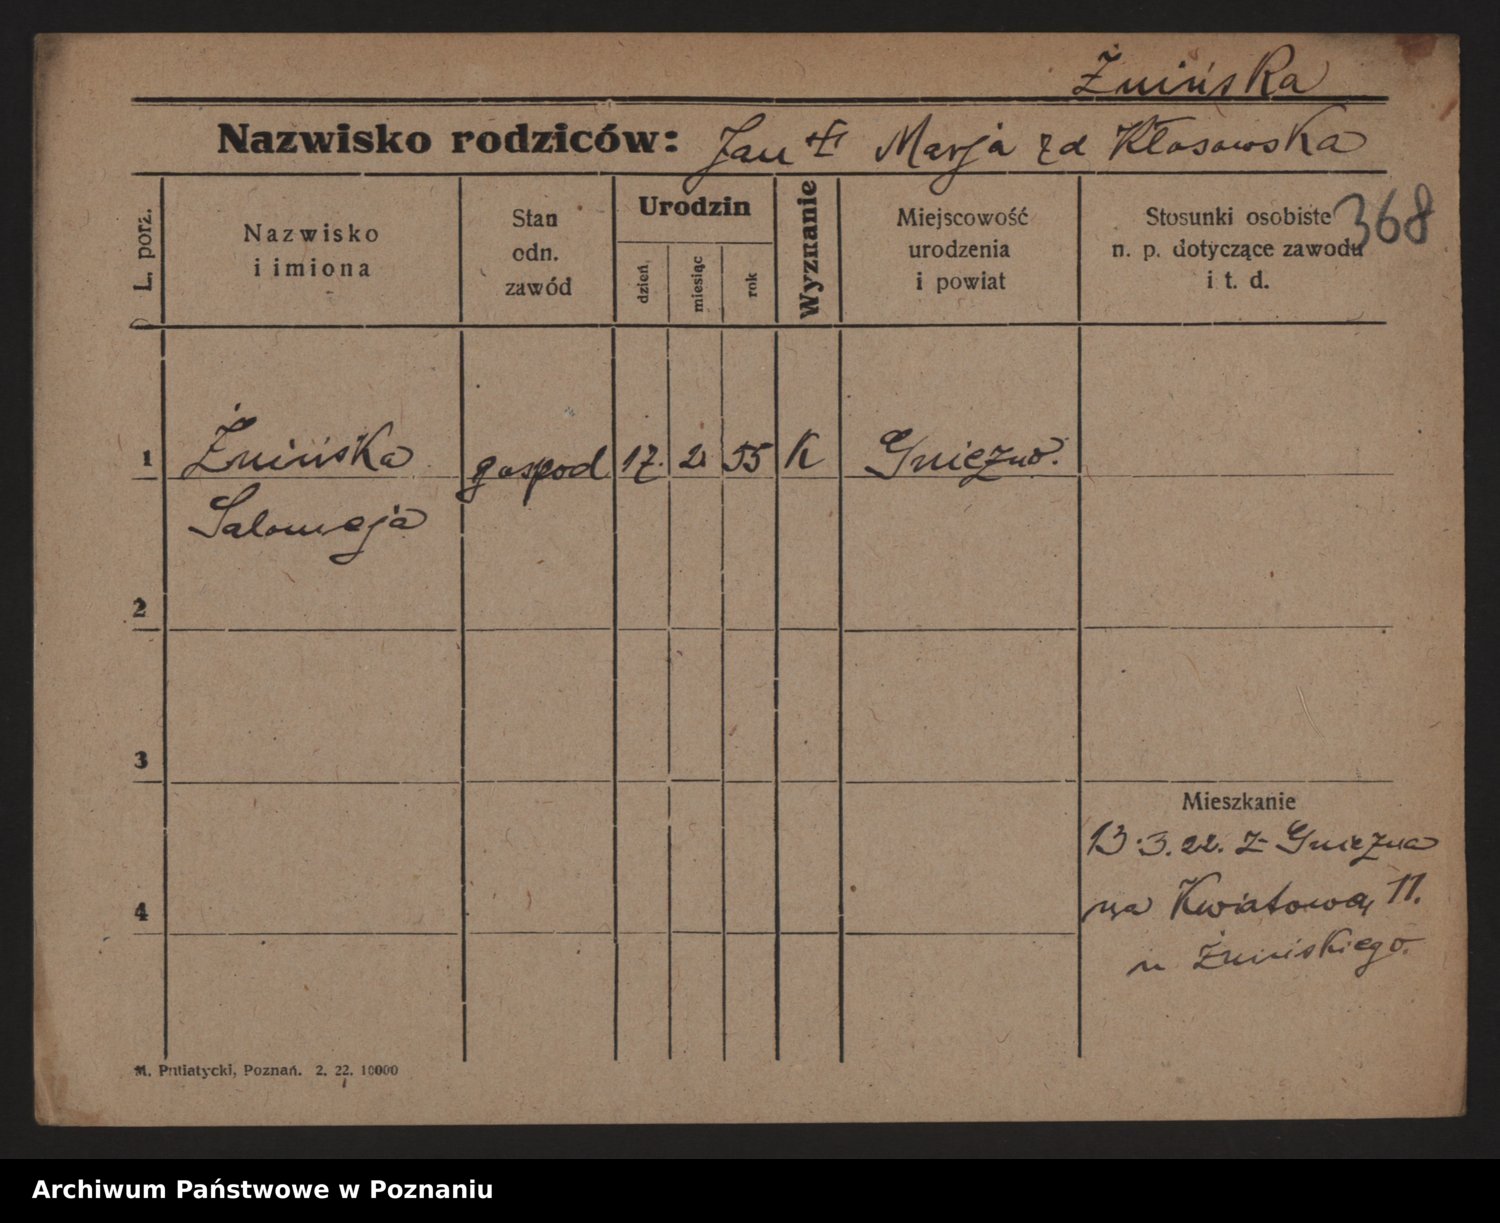 Żnińska
Nazwisko rodziców: Jan Marja zd Kłosowska
368
L. porz.
Nazwisko
i imiona
Stan
odn.
zawód
Urodzin
dzień
miesiąc
rok
Wyznanie
Miejscowość
urodzenia
i powiat
Stosunki osobiste
n. p. dotyczące zawodu
i t. d.
1 Żnińska gospod 17. 2. 55 K Gniezno.
Salomeja
2
3
Mieszkanie
13.3.22. z Gniezna
na Kwiatową 11.
4
u Żnińskiego.
M. Putiatycki, Poznań. 2. 22. 10000
Archiwum Państwowe w Poznaniu